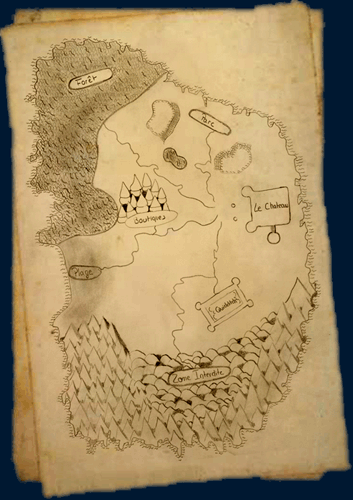 Forêt
Parc
Le Chateau
Boutiques
Plage
Quidditch
Zone Interdite